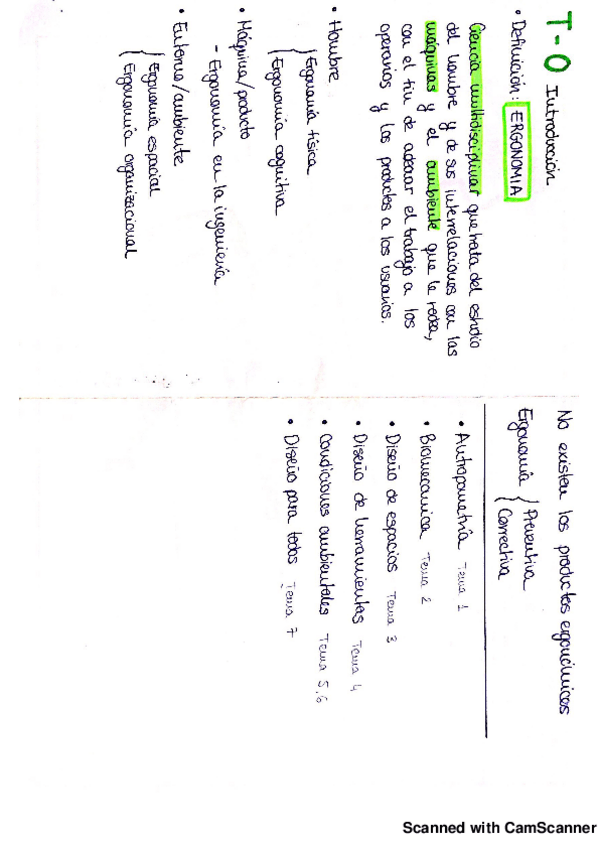 T-0 Introducción
• Definición: ERGONOMIA
Ciencia multidisciplinar que trata del estudio
del hombre y de sus interrelaciones con las
máquinas y el ambiente que le rodea,
con el fin de adecuar el trabajo a los
operarios y los productos a los usuarios.
• Hombre
Ergonomía física
Ergonomía cognitiva
• Máquina/producto
- Ergonomía en la ingeniería
• Entorno/ambiente
Ergonomía espacial
Ergonomía organizacional
No existen los productos ergonómicos
Ergonomía
Preventiva
Correctiva
• Antropometría Tema 1
• Biomecánica Tema 2
• Diseño de espacios Tema 3
• Diseño de herramientas Tema 4
• Condiciones ambientales Tema 5,6
• Diseño para todos Tema 7
Scanned with CamScanner